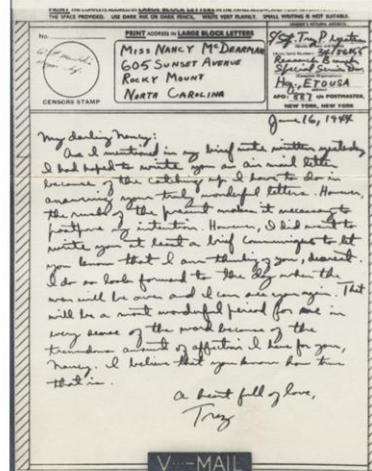 THE SPACE PROVIDED. USE DARK INK OR DARK PENCIL. WRITE VERY PLAINLY. SMALL WRITING IS NOT SUITABLE.
No.
PRINT ADDRESS IN LARGE BLOCK LETTERS
MISS NANCY McDEARMAN
605 SUNSET AVENUE
ROCKY MOUNT
NORTH CAROLINA
CENSORS STAMP
Research Branch
Special Service Div.
Hq., ETOUSA
APO: 887 c/o POSTMASTER,
NEW YORK, NEW YORK
June 16, 1944
My darling Nancy:
As I mentioned in my brief note written yesterday
I had hoped to write you an air mail letter
because of the catching up I have to do in
answering your truly wonderful letters. However,
the rush of the present makes it necessary to
postpone my intention. However, I did want to
write you at least a brief communique to let
you know that I am thinking of you, dearest.
I do so look forward to the day when the
war will be over and I can see you again. That
will be a most wonderful period for me in
every sense of the word because of the
tremendous amount of affection I have for you,
Nancy. I believe that you know how true
that is.
A heart full of love,
Trez
V···-MAIL